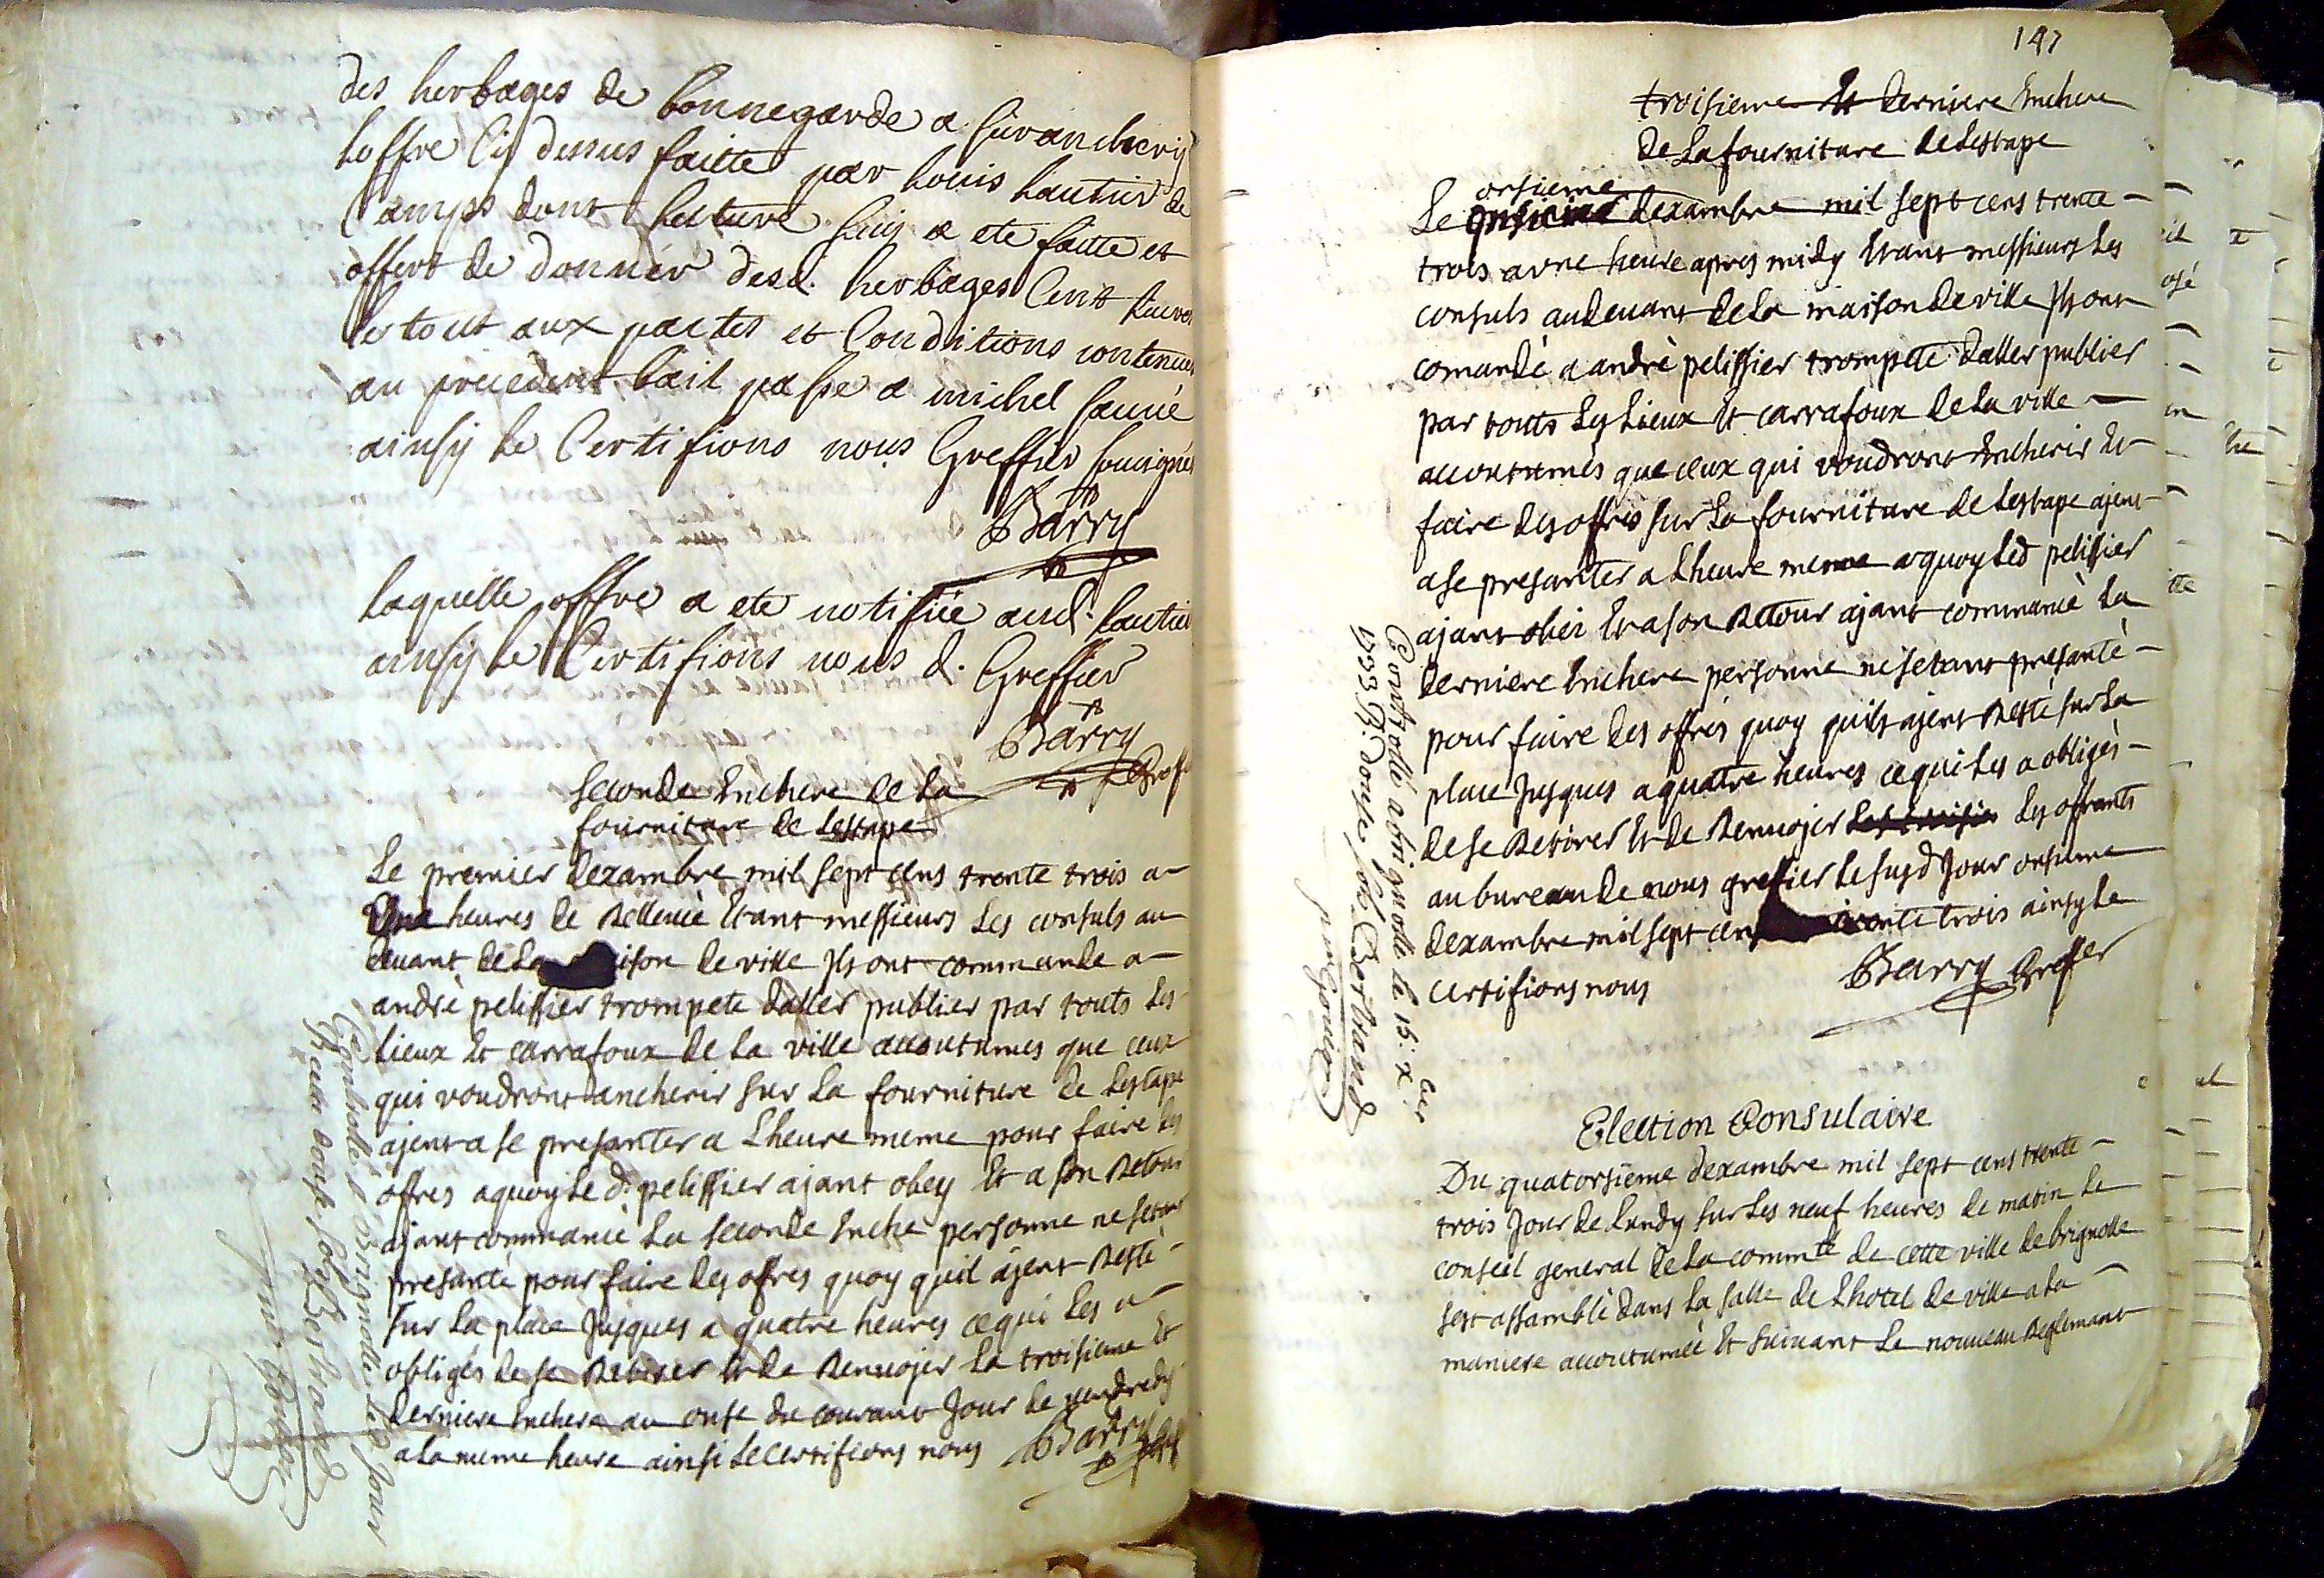 des herbages de bonnegarde a surancherij
loffre Cy dessus faitte par Louis hautier de
Camps dont lecture luij a ete faitte et
offert de donner desd. herbages Cent
le tout aux pactes et Conditions contenues
au precedent bail passe a michel saune
ainsy le Certifions nous Greffier sousigné
Barry
laquelle offre a ete notifiée aud. hautier
ainsy le Certifions nous d. Greffier
Barry
Greff
seconde Enchere de la
fourniture de Lestape
Le premier dexambre mil sept cens trente trois a
Une heures de Relleuée Etant messieurs Les consuls au
deuant de La ison de ville Jls ont commande a
andrè pelissier trompete daller publier par touts les
lieux Et carrafoux de la ville accoutumes que ceux
qui voudront ancherir sur La fourniture de Lestape
ajent a se presanter a Lheure meme pour faire les
offres a quoy Le d. pelissier ajant obey Et a son Retour
ajant commancè La seconde Enche personne ne setant
presantè pour faire des offres quoy quil ajent Restè
sur La place Jusques a quatre heures ce qui Les a
obligès de se Retirer Et de Renuojer La troisieme Et
derniere Enchere au onse du courant Jour de vendredy
a la meme heure ainsi Le certifions nous Barry
Controllé a brignolle led Jour
Reçu douse sols Bertrand
pour Goujon
147
troisieme Et derniere Enchere
de La fourniture de Lestape
orsieme
Le dexambre mil sept cens trente
trois a vne heure apres midy Etant messieurs Les
consuls audeuant de La maison de ville Jls ont
comandè a andrè pelissier trompete daller publier
par touts Les Lieux Et carrafoux de La ville
accoutumès que ceux qui voudront Encherir Et
faire des offres sur La fourniture de Lestape ajent
a se presanter a Lheure meme a quoy Led pelissier
ajant obei Et a son Retour ajant commancè La
derniere Enchere personne ne setant presantè
pour faire des offres quoy quils ajent Restè sur La
place Jusques a quatre heures ce qui Les a obligès
de se Retirer Et de Renuojer Les offrants
au bureau de nous grefier Le susd Jour onsieme
dexambre mil sept cens trente trois ainsy Le
certifions nous
Barry Greffier
Controllé a brignolle le 15: xber
1733 R: douse sols Bertrand
pour Goujon
Election Consulaire
Du quatorsieme dexambre mil sept cens trente
trois Jour de Lundy sur Les neuf heures de matin Le
conseil general de La commté de cette ville de brignolle
sest assamblè dans La salle de Lhotel de ville a La
maniere accoutumèe Et suivant Le nouveau Reglemant